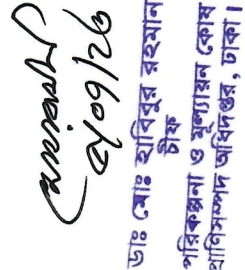 ২০/০৮/২৩
ডাঃ মোঃ হাবিবুর রহমান
চীফ
পরিকল্পনা ও মূল্যায়ন কোষ
প্রাণিসম্পদ অধিদপ্তর, ঢাকা।